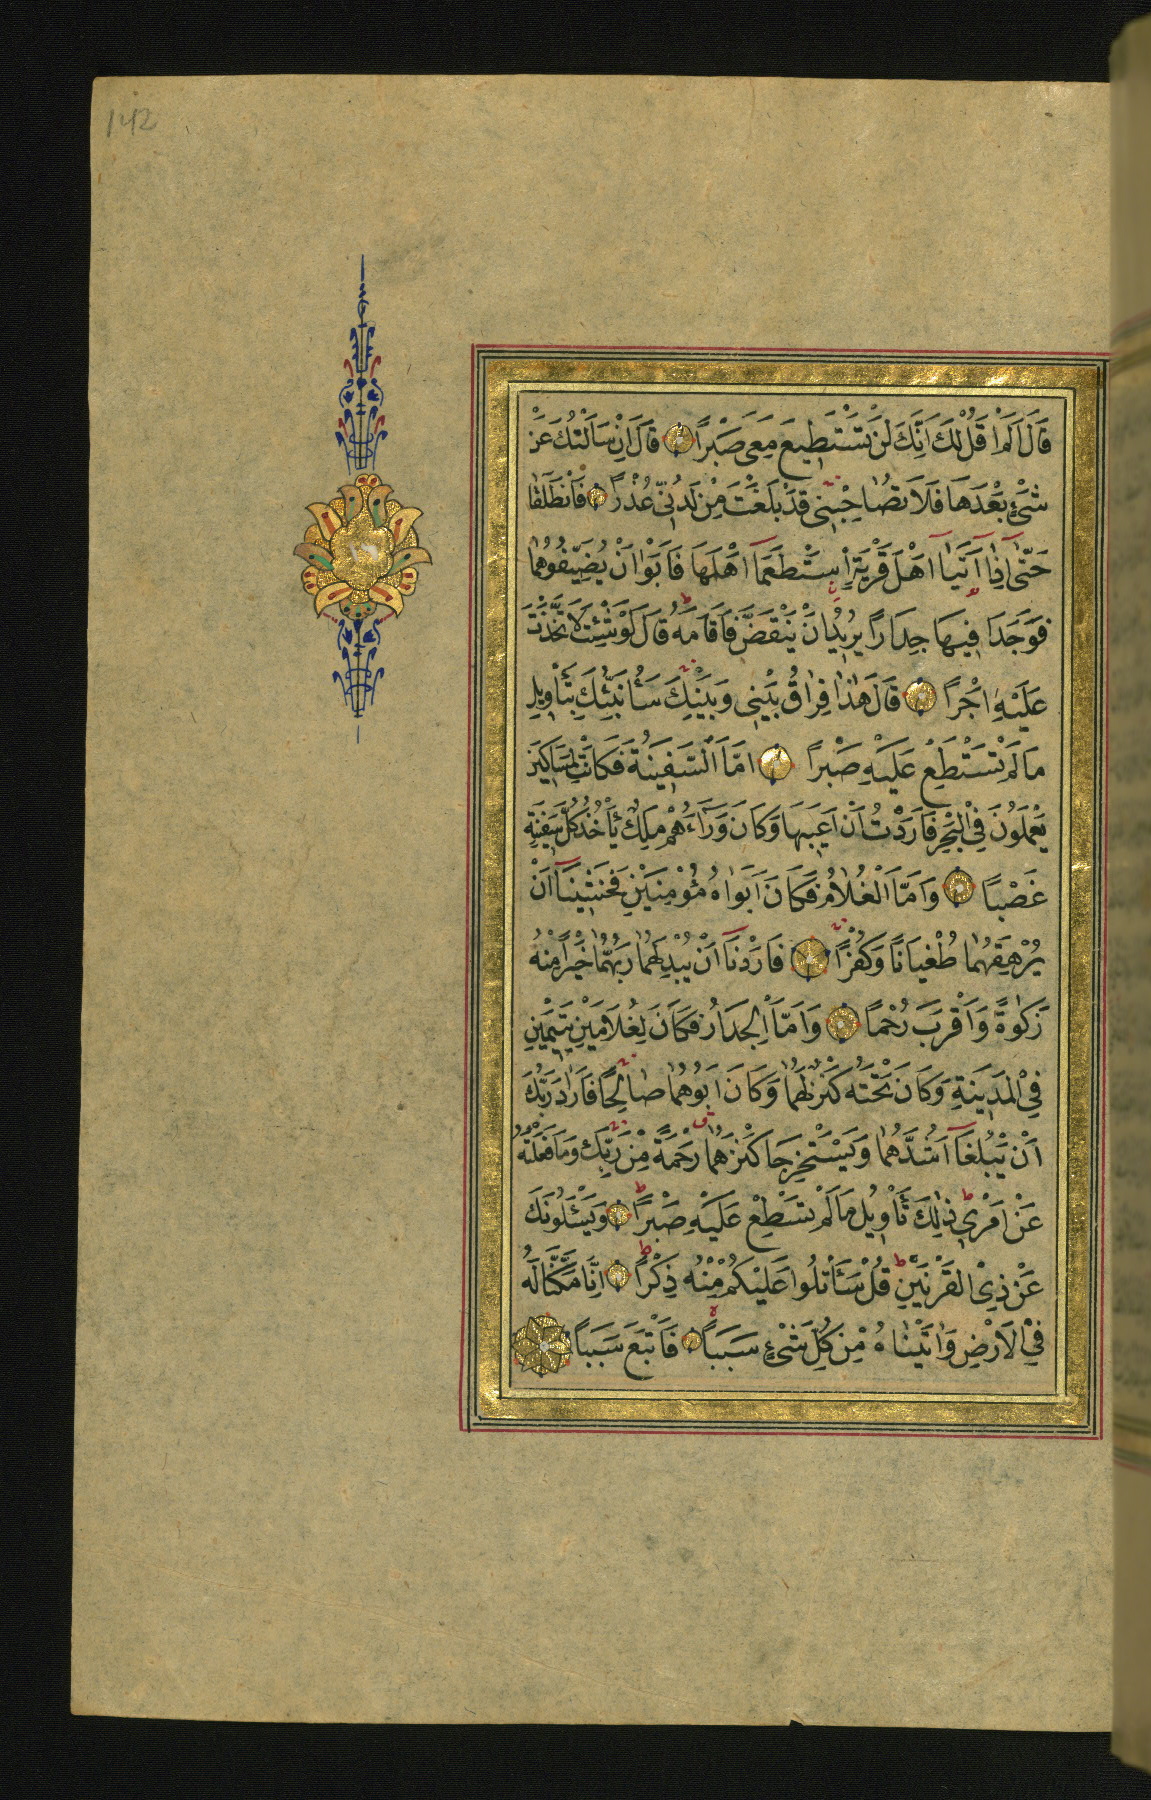 142
قَالَ اَلَمْ اَقُلْ لَكَ اِنَّكَ لَنْ تَسْتَطِيعَ مَعِىَ صَبْرًا قَالَ اِنْ سَاَلْتُكَ عَنْ
شَىْءٍ بَعْدَهَا فَلَا تُصَاحِبْنِى قَدْ بَلَغْتَ مِنْ لَدُنِّى عُذْرًا فَانْطَلَقَا
حَتّٰى اِذَا اَتَيَا اَهْلَ قَرْيَةٍ اسْتَطْعَمَا اَهْلَهَا فَاَبَوْا اَنْ يُضَيِّفُوهُمَا
فَوَجَدَا فِيهَا جِدَارًا يُرِيدُ اَنْ يَنْقَضَّ فَاَقَامَهُ قَالَ لَوْ شِئْتَ لَاتَّخَذْتَ
عَلَيْهِ اَجْرًا قَالَ هٰذَا فِرَاقُ بَيْنِى وَبَيْنِكَ سَاُنَبِّئُكَ بِتَأْوِيلِ
مَا لَمْ تَسْتَطِعْ عَلَيْهِ صَبْرًا اَمَّا السَّفِينَةُ فَكَانَتْ لِمَسَاكِينَ
يَعْمَلُونَ فِى الْبَحْرِ فَاَرَدْتُ اَنْ اَعِيبَهَا وَكَانَ وَرَاءَهُمْ مَلِكٌ يَأْخُذُ كُلَّ سَفِينَةٍ
غَصْبًا وَاَمَّا الْغُلَامُ فَكَانَ اَبَوَاهُ مُؤْمِنَيْنِ فَخَشِينَا اَنْ
يُرْهِقَهُمَا طُغْيَانًا وَكُفْرًا فَاَرَدْنَا اَنْ يُبْدِلَهُمَا رَبُّهُمَا خَيْرًا مِنْهُ
زَكٰوةً وَاَقْرَبَ رُحْمًا وَاَمَّا الْجِدَارُ فَكَانَ لِغُلَامَيْنِ يَتِيمَيْنِ
فِى الْمَدِينَةِ وَكَانَ تَحْتَهُ كَنْزٌ لَهُمَا وَكَانَ اَبُوهُمَا صَالِحًا فَاَرَادَ رَبُّكَ
اَنْ يَبْلُغَا اَشُدَّهُمَا وَيَسْتَخْرِجَا كَنْزَهُمَا رَحْمَةً مِنْ رَبِّكَ وَمَا فَعَلْتُهُ
عَنْ اَمْرِى ذٰلِكَ تَأْوِيلُ مَا لَمْ تَسْطِعْ عَلَيْهِ صَبْرًا وَيَسْـَٔلُونَكَ
عَنْ ذِى الْقَرْنَيْنِ قُلْ سَاَتْلُوا عَلَيْكُمْ مِنْهُ ذِكْرًا اِنَّا مَكَّنَّا لَهُ
فِى الْاَرْضِ وَاٰتَيْنَاهُ مِنْ كُلِّ شَىْءٍ سَبَبًا فَاَتْبَعَ سَبَبًا